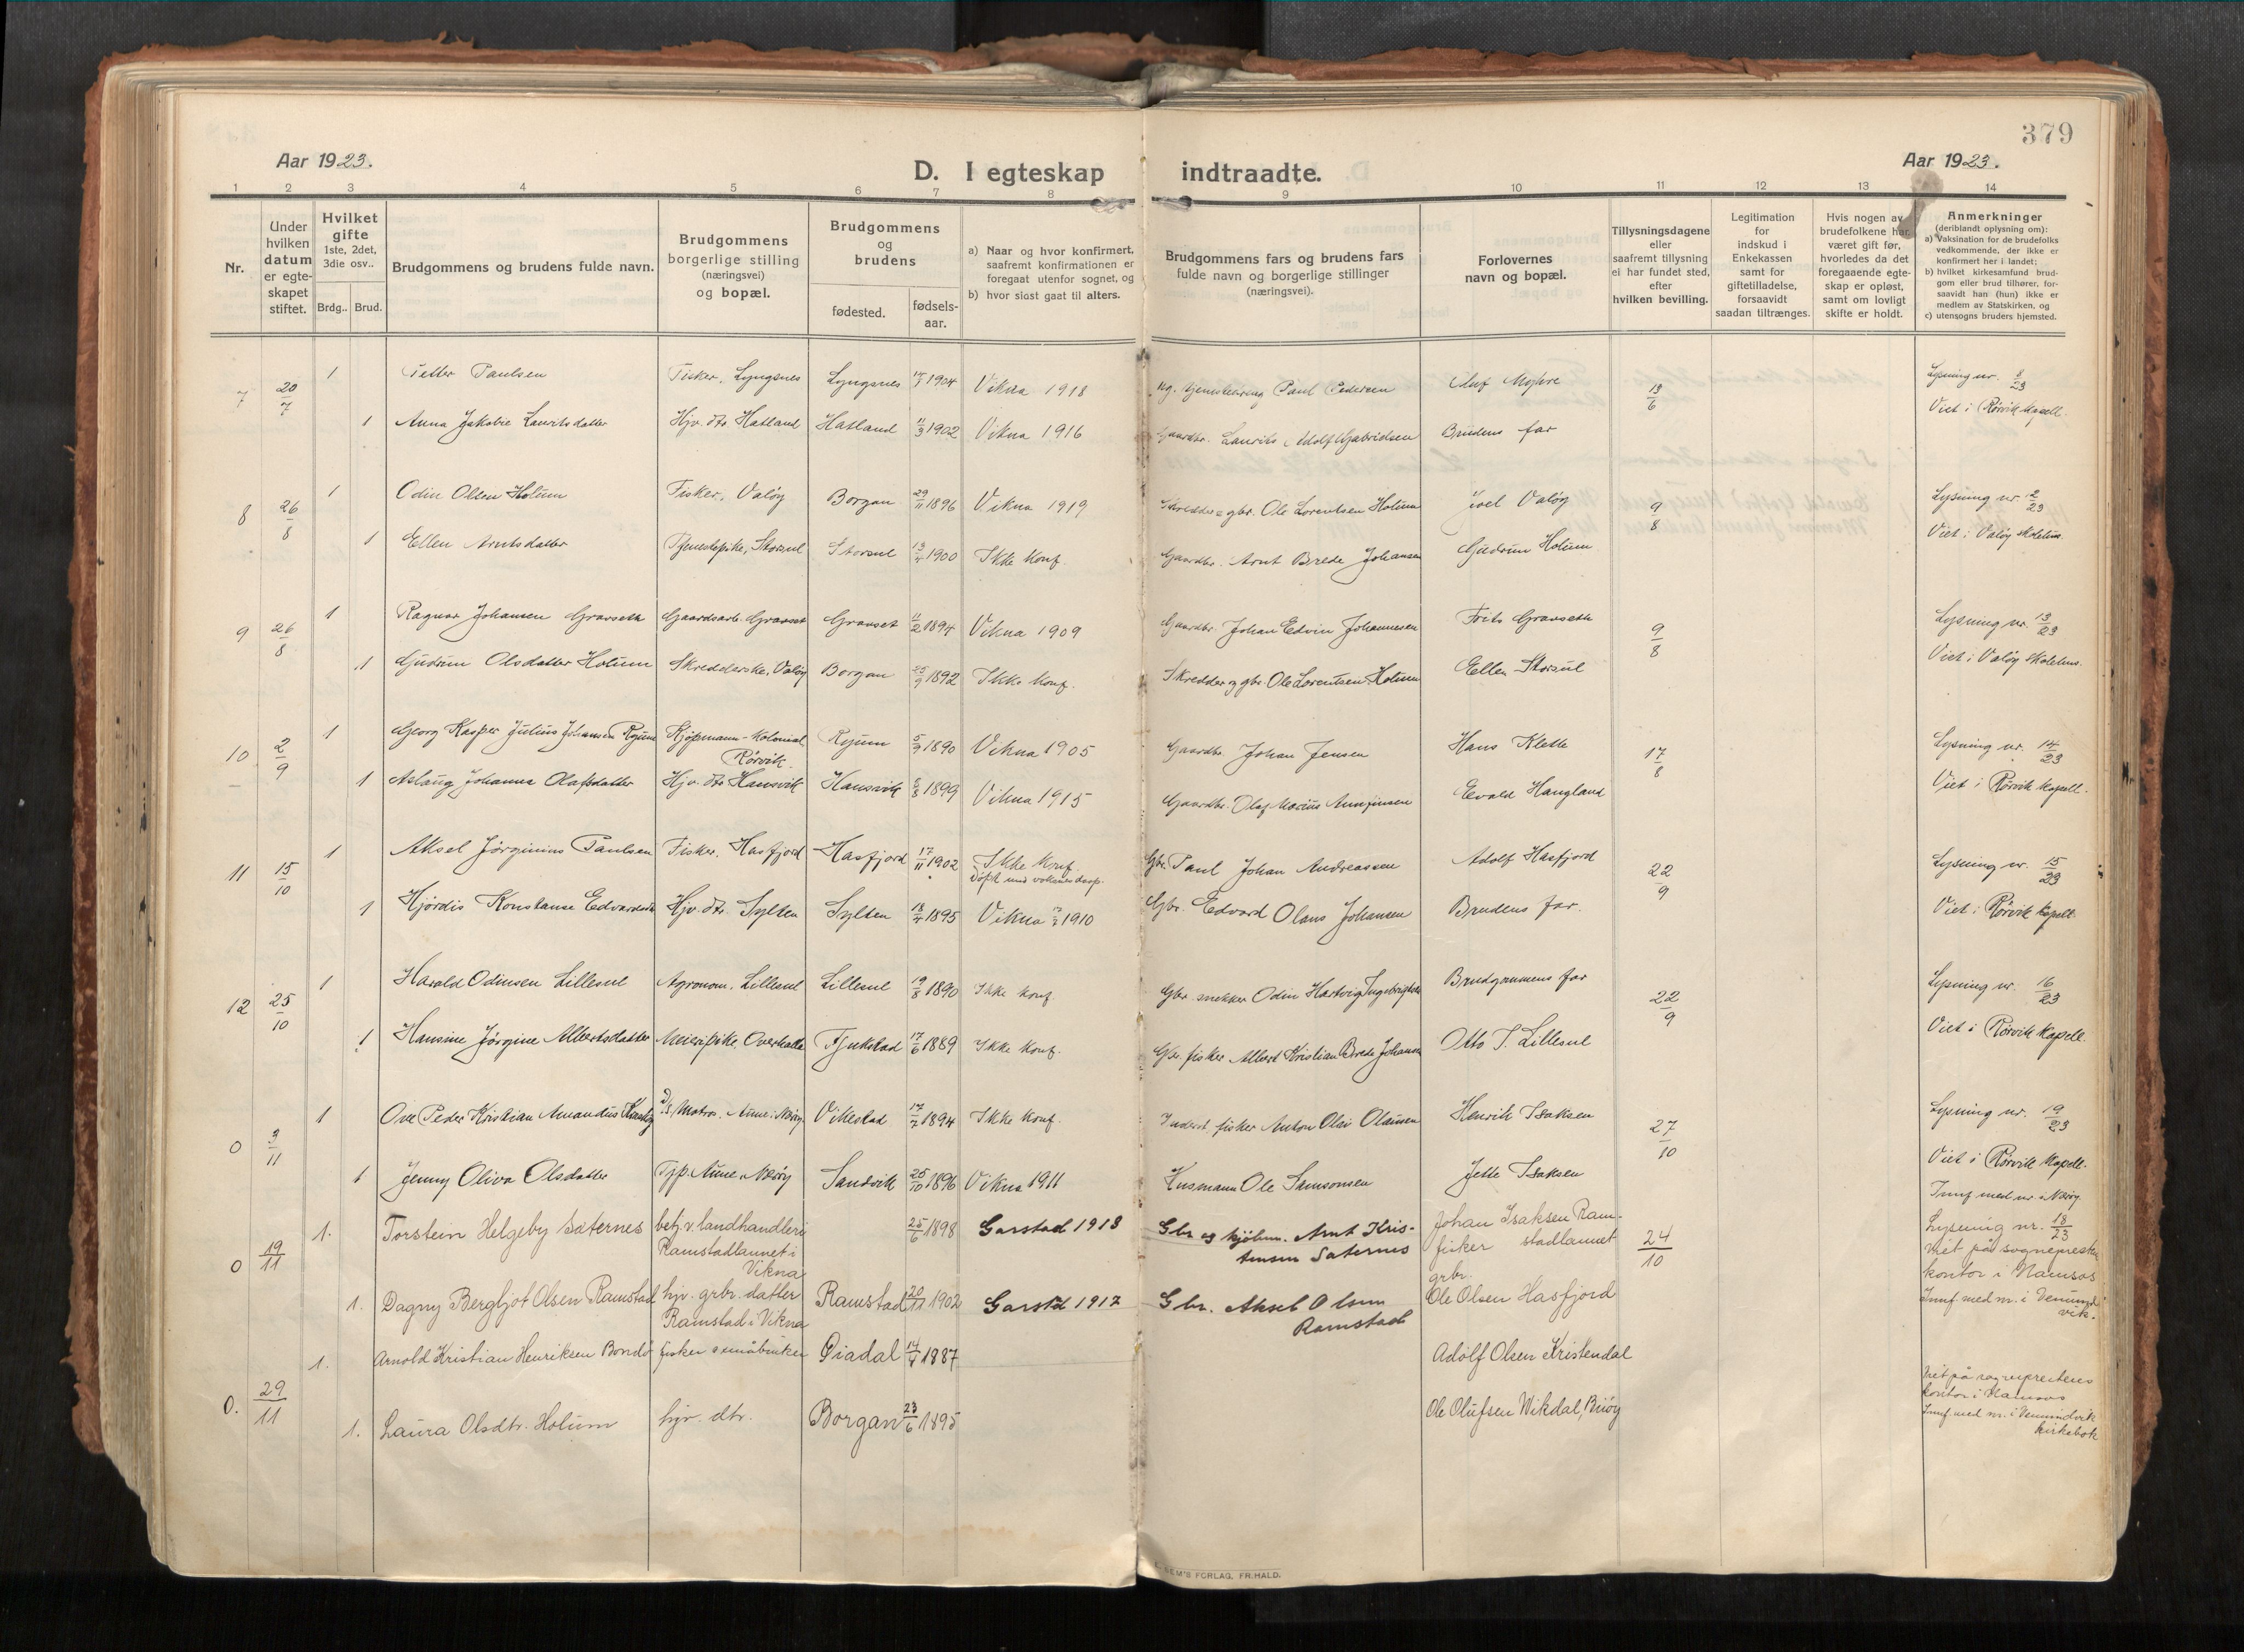 379
Aar 1923.
D. I egteskap indtraadte.
Aar 1923.
1 2 3 4 5 6 7 8 9 10 11 12 13 14
Nr.
Under hvilken datum er egte-skapet stiftet.
Hvilket gifte 1ste, 2det, 3die osv..
Brdg.. Brud.
Brudgommens og brudens fulde navn.
Brudgommens borgerlige stilling (næringsvei) og bopæl.
Brudgommens og brudens
fødested. fødsels-aar.
a) Naar og hvor konfirmert, saafremt konfirmationen er foregaat utenfor sognet, og
b) hvor sidst gaat til alters.
Brudgommens fars og brudens fars fulde navn og borgerlige stillinger (næringsvei).
Forlovernes navn og bopæl.
Tillysningsdagene eller saafremt tillysning ei har fundet sted, efter hvilken bevilling.
Legitimation for indskud i Enkekassen samt for giftetilladelse, forsaavidt saadan tiltrænges.
Hvis nogen av brudefolkene har været gift før, hvorledes da det foregaaende egte-skap er opløst, samt om lovligt skifte er holdt.
Anmerkninger (deriblandt oplysning om):
a) Vaksination for de brudefolks vedkommende, der ikke er konfirmert her i landet;
b) hvilket kirkesamfund brud-gom eller brud tilhører, for-saavidt han (hun) ikke er medlem av Statskirken, og
c) utensogns bruders hjemsted.
7 20/7 1 Petter Paulsen Fisker, Lyngsnes Lyngsnes 1904 Vikna 1918 Paul Pedersen Olaf Myhre 13/6 Lysning nr. 8/23
1 Anna Jakobie Lauritsdatter Hjv. dtr. Hatland Hatland 11/3 1902 Vikna 1916 Gaardbr. Laurits Adolf Gabrielsen Brudens far Viet i Rørvik kapell.
8 26/8 1 Odin Olsen Holum Fisker, Valøy Borgan 29/11 1896 Vikna 1919 Skredder og gbr. Ole Lorentsen Holum Joel Valøy 9/8 Lysning nr. 12/23
1 Ellen Arntsdatter Tjenestepike, Storsul Storsul 13/4 1900 Ikke konf. Gaardbr. Arnt Brede Johansen Gudrun Holum Viet i Valøy skolehus.
9 26/8 1 Ragnar Johansen Gravseth Gaardsarb. Gravset Gravset 11/2 1894 Vikna 1909 Gaardbr. Johan Edvin Johannesen Frits Gravseth 9/8 Lysning nr. 13/23
1 Gudrun Olsdatter Holum Skredderske, Valøy Borgan 25/9 1892 Ikke konf. Skredder og gbr. Ole Lorentsen Holum Ellen Storsul Viet i Valøy skolehus.
10 2/9 1 Georg Kasper Julius Johansen Ryum Kjøpmann - kolonial Rørvik. Ryum 1890 Vikna 1905 Gaardbr. Johan Jensen Hans Klette 17/8 Lysning nr. 14/23
1 Aslaug Johanna Olafsdatter Hjv. dtr. Hansvik Hansvik 1899 Vikna 1915 Gaardbr. Olaf Marius Arnfinsen Evald Haugland Viet i Rørvik kapell.
11 15/10 1 Aksel Jørginius Paulsen Fisker. Hasfjord Hasfjord 17/11 1902 Ikke konf. Døpt med voksnes daap. Gbr. Paul Johan Andreassen Adolf Hasfjord 22/9 Lysning nr. 15/23
1 Hjørdis Konstanse Edvardsdtr Hjv. dtr. Sylten Sylten 1895 Vikna 1910 Gbr. Edvard Olaus Johansen Brudens far. Viet i Rørvik kapell.
12 25/10 1 Harald Odinsen Lillesul Agronom. Lillesul Lillesul 19/8 1890 Ikke konf. Gbr. snekker Odin Hartvig Ingebrigtsen Brudgommens far 22/9 Lysning nr. 16/23
1 Hansine Jørgine Albertsdatter Meieripike, Overhalla Fjukstad 17/6 1889 Ikke konf. Gbr. fisker Albert Kristian Brede Johansen Otto T. Lillesul Viet i Rørvik kapell.
0 3/11 1 Ove Peder Kristian Amandus Matros. Aune i Nærøy. Vikestad 17/7 1894 Ikke konf. Inderst, fisker Anton Olai Olausen Henrik Isaksen 27/10 Lysning nr. 19/23
1 Jenny Oliva Olsdatter Tjp. Aune, Nærøy Sandvik 25/10 1896 Vikna 1911 Husmann Ole Samsonsen Jette Isaksen Viet i Rørvik kapell.
Innf med nr. i Nærøy.
0 19/11 1. Torstein Helgeby Sæternes betj. v. landhandleri Ramstadlannet i Vikna 25/6 1898 Garstad 1913 Gbr og kjøbm. Arnt Kris-tensen Saternes Johan Isaksen Ram-stadlannet fisker 24/10 Lysning nr. 18/23
viet på sogneprestens kontor i Namsos
1. Dagny Bergljot Olsen Ramstad hjv. grbr. datter Ramstad i Vikna Ramstad 20/11 1902 Garstd 1917 Gbr. Aksel Olsen Ramstad grbr. Ole Olsen Hasfjord Innf. med nr. i Vemund-vik.
0. 29/11 1. Arnold Kristian Henriksen Bondø fisker småbruker Giadal 14/4 1887 Adolf Olsen Kristendal Viet på sogneprestens kontor i Namsos
1. Laura Olsdtr. Holum hjv. dtr. Borgan 23/6 1895 Ole Olufsen Wikdal, Innf. med nr. i Vemundvik kirkebok
FORLAG. FR. HALD.